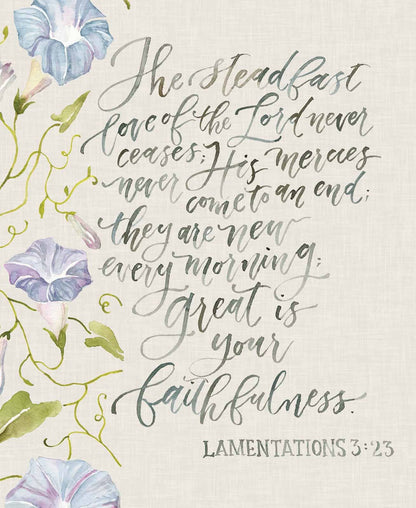 The steadfast
love of the Lord never
ceases; His mercies
never come to an end;
they are new
every morning;
great is
your
faithfulness.
LAMENTATIONS 3:23